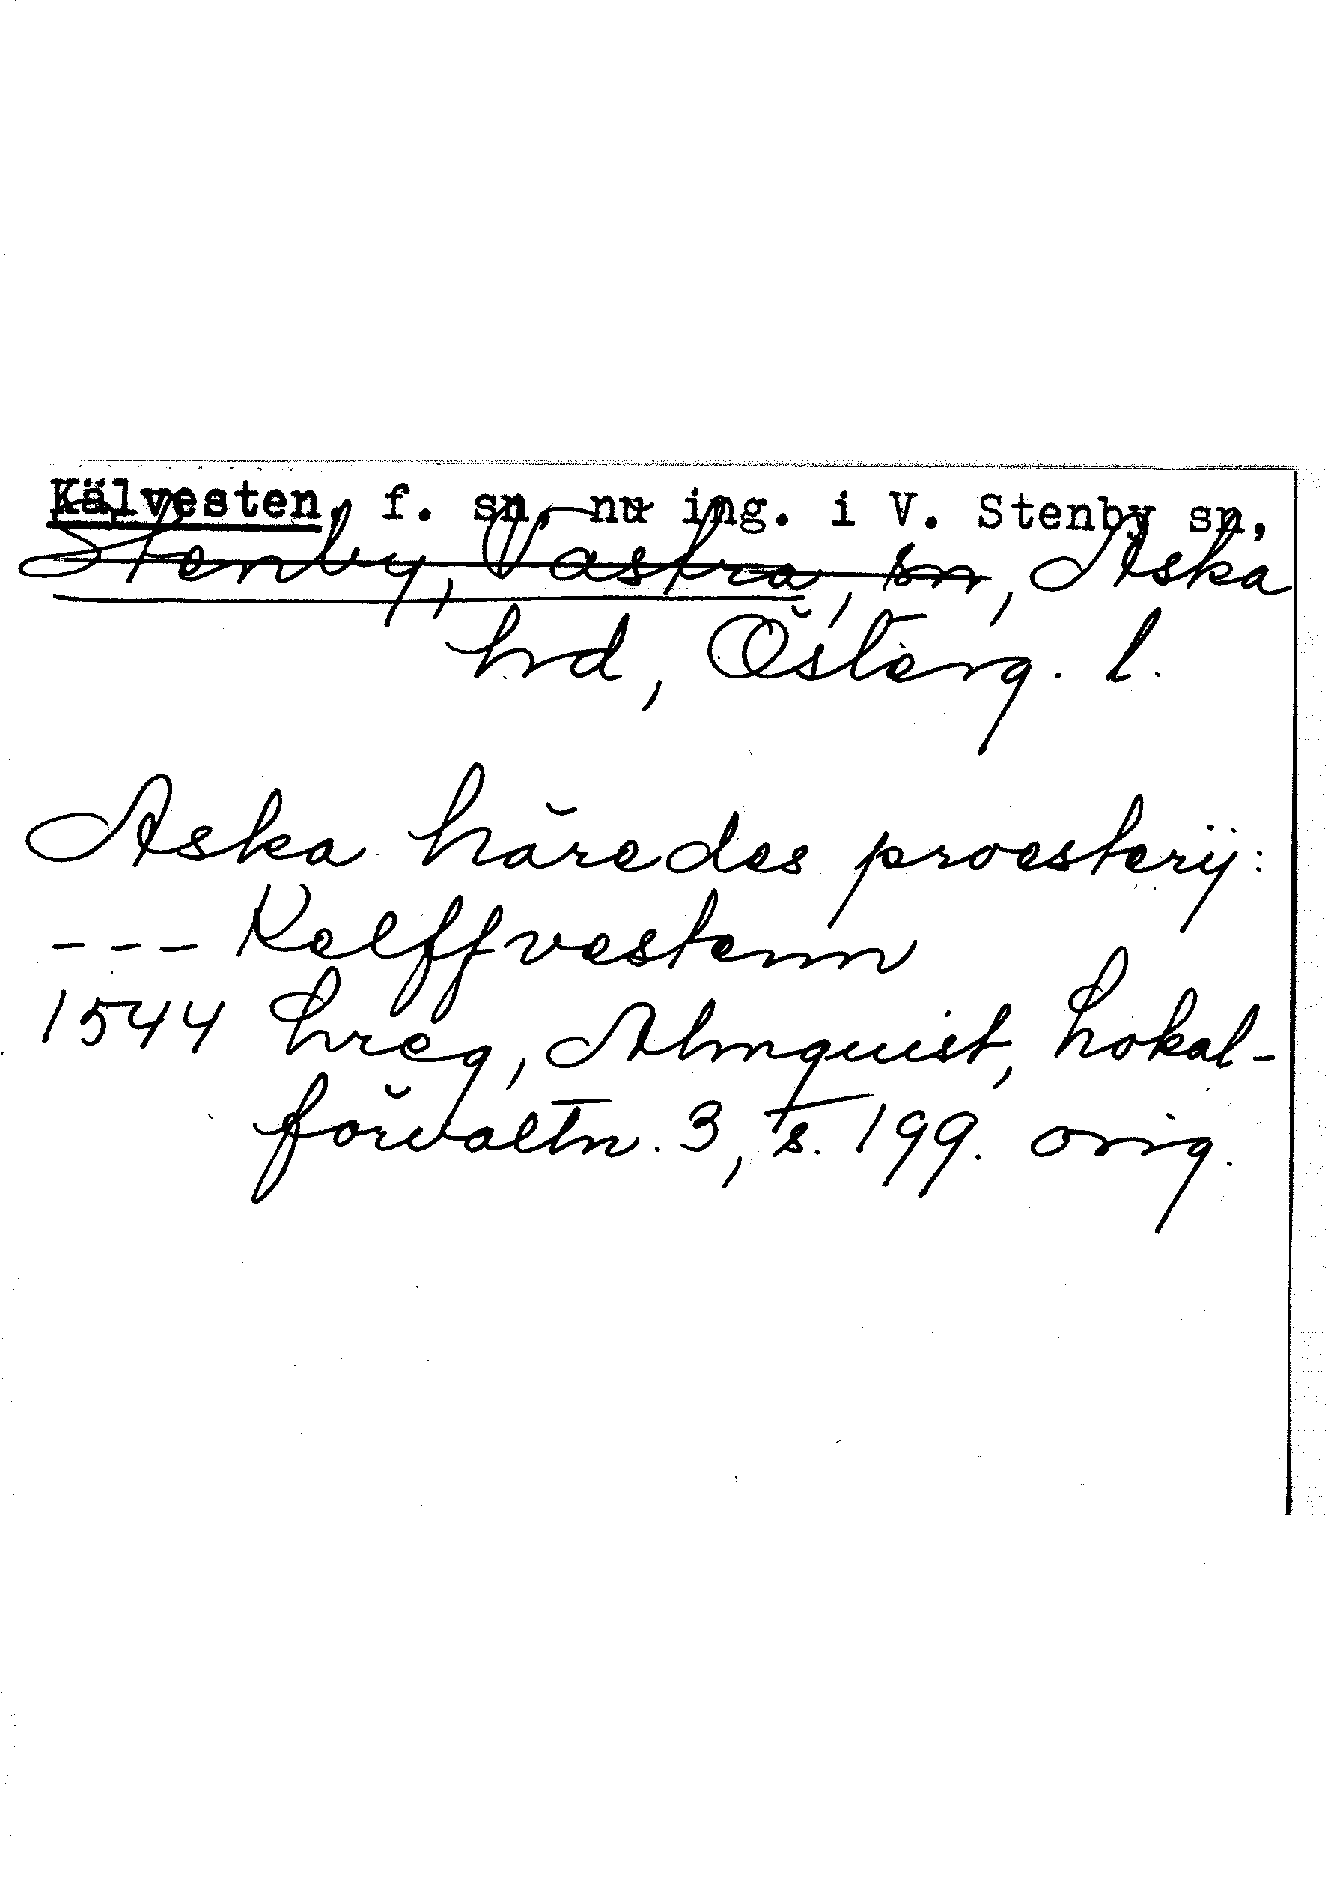 Kälvesten, f. sn, nu ing. i V. Stenby sn,
Stenby, Västra, sn, Aska
hd, Österg. l.
Aska häredes proesterij:
--- Kelffvestenn
1544 hreg, Almquist, Lokal-
förvaltn. 3, s. 199. orig.